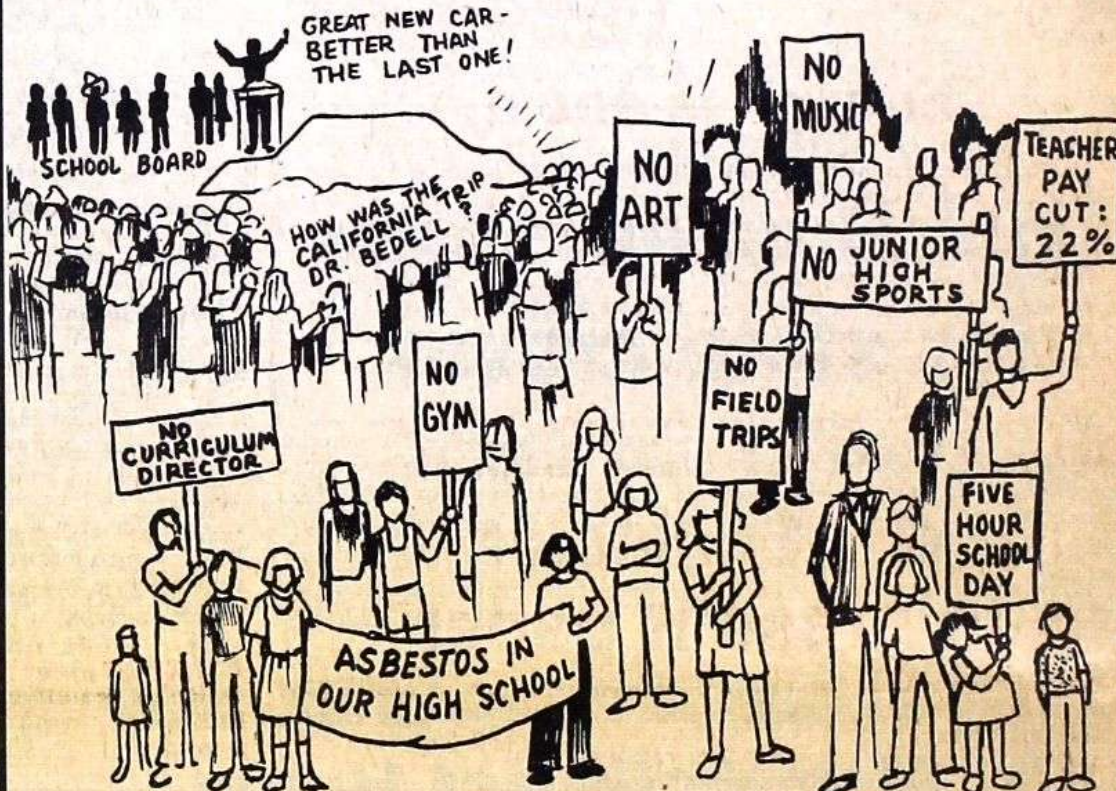 GREAT NEW CAR-
BETTER THAN
THE LAST ONE!
SCHOOL BOARD
HOW WAS THE
CALIFORNIA TRIP
DR. BEDELL ?
NO
MUSIC
NO
ART
TEACHER
PAY
CUT:
22%
NO JUNIOR
HIGH
SPORTS
NO
GYM
NO
FIELD
TRIPS
NO
CURRICULUM
DIRECTOR
FIVE
HOUR
SCHOOL
DAY
ASBESTOS IN
OUR HIGH SCHOOL